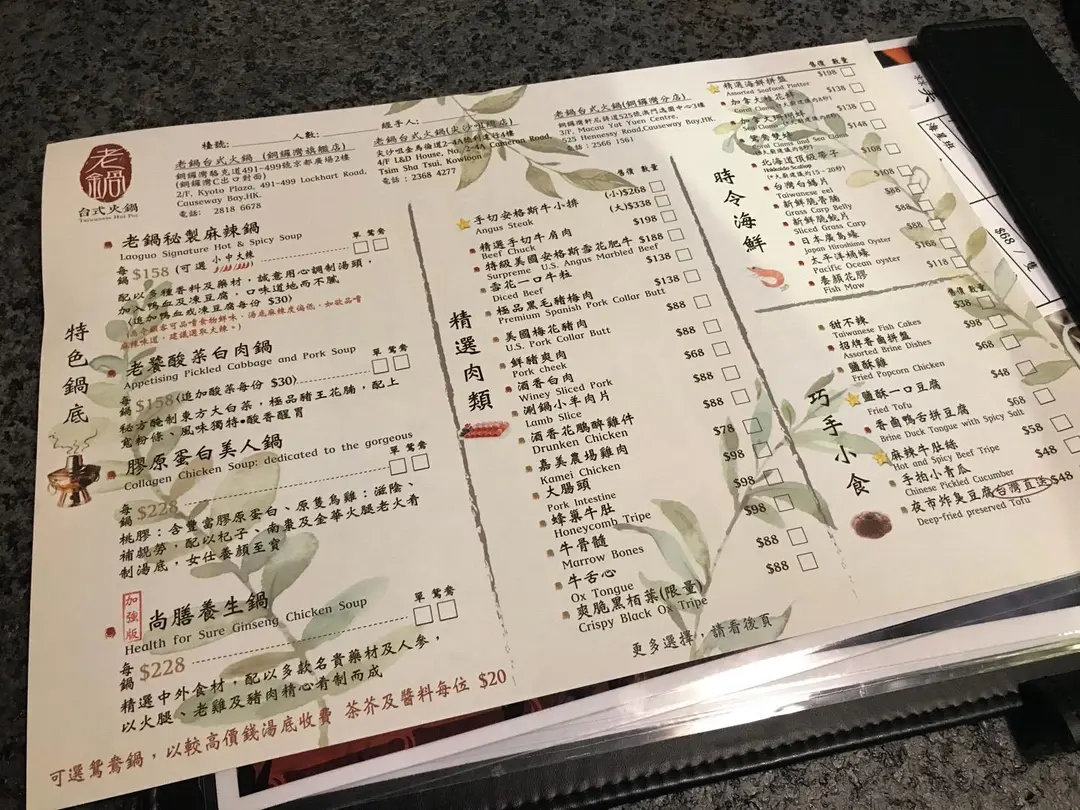 老鍋
台式火鍋
Taiwanese Hot Pot
檯號:
人數:
經手人:
老鍋台式火鍋 (銅鑼灣旗艦店)
銅鑼灣駱克道491-499號京都廣場2樓
(銅鑼灣C出口對面)
2/F, Kyoto Plaza, 491-499 Lockhart Road,
Causeway Bay,HK.
電話: 2818 6678
老鍋台式火鍋(尖沙咀諾店)
4/F L&D House, No. 2-4A Cameron Road,
Tsim Sha Tsui, Kowloon
電話:2368 4277
老鍋台式火鍋(銅鑼灣分店)
銅鑼灣軒尼詩道525號澳門逸園中心3樓
3/F, Macau Yat Yuen Centre,
525 Hennessy Road,Causeway Bay,HK.
電話:2566 1561
特色鍋底
老鍋秘製麻辣鍋
Laoguo Signature Hot & Spicy Soup
單 鴛鴦
每鍋 $158 (可選 小中大辣
配以多種香料及藥材,誠意用心調制湯頭,
加入鴨血及凍豆腐,口味道地而不膩。
(追加鴨血或凍豆腐每份 $30)
麻辣味道,建議選取大辣。)
老饕酸菜白肉鍋
Appetising Pickled Cabbage and Pork Soup
單 鴛鴦
每鍋 $158(追加酸菜每份 $30)
秘方醃制東方大白菜,極品豬王花腩,配上
寬粉條、風味獨特•酸香醒胃
膠原蛋白美人鍋
Collagen Chicken Soup: dedicated to the gorgeous
單 鴛鴦
每鍋 $228
桃膠:含豐富膠原蛋白、原隻烏雞:滋陰、
補虧勞,配以杞子、南棗及金華火腿老火肴
制湯底,女仕養顏至寶
加強版
尚膳養生鍋
Health for Sure Ginseng Chicken Soup
單 鴛鴦
每鍋 $228
精選中外食材,配以多款名貴藥材及人參,
以火腿、老雞及豬肉精心肴制而成
可選鴛鴦鍋,以較高價錢湯底收費 茶芥及醬料每位 $20
精選肉類
售價 數量
手切安格斯牛小排
Angus Steak
(小)$268
(大)$338
精選手切牛肩肉
Beef Chuck
$198
特級美國安格斯雪花肥牛
Surpreme U.S. Angus Marbled Beef
$188
雪花一口牛粒
Diced Beef
$138
極品黑毛豬梅肉
Premium Spanish Pork Collar Butt
$138
美國梅花豬肉
U.S. Pork Collar Butt
$88
鮮豬爽肉
Pork cheek
$88
酒香白肉
Winey Sliced Pork
$68
涮鍋小羊肉片
Lamb Slice
$88
酒香花鵰醉雞件
Drunken Chicken
$88
嘉美農場雞肉
Kamei Chicken
$78
大腸頭
Pork Intestine
$98
蜂巢牛肚
Honeycomb Tripe
$98
牛骨髓
Marrow Bones
$98
牛舌心
Ox Tongue
$88
爽脆黑栢葉(限量)
Crispy Black Ox Tripe
$88
更多選擇,請看後頁
時令海鮮
售價 數量
精選海鮮拼盤
Assorted Seafood Platter
$198
加拿大桂花蚌
$138
$138
Coral Clams and Sea Clams
$148
北海道頂級帶子
Hokkaido Scallop
$108
台灣白鱔片
Taiwanese eel
$108
新鮮脆脊腩
Grass Carp Belly
$88
新鮮脆鯇片
Sliced Grass Carp
$88
日本廣島蠔
Japan Hiroshima Oyster
$168
太平洋桶蠔
Pacific Ocean oyster
養顏花膠
Fish Maw
$118
巧手小食
售價 數量
甜不辣
Taiwanese Fish Cakes
$38
招牌香鹵拼盤
Assorted Brine Dishes
$98
鹽酥雞
Fried Popcorn Chicken
$68
鹽酥一口豆腐
Fried Tofu
$48
香鹵鴨舌拼豆腐
Brine Duck Tongue with Spicy Salt
$68
麻辣牛肚絲
Hot and Spicy Beef Tripe
$58
手拍小青瓜
Chinese Pickled Cucumber
$48
夜市炸臭豆腐(台灣直送)
Deep-fried preserved Tofu
$48
$68 / 碟